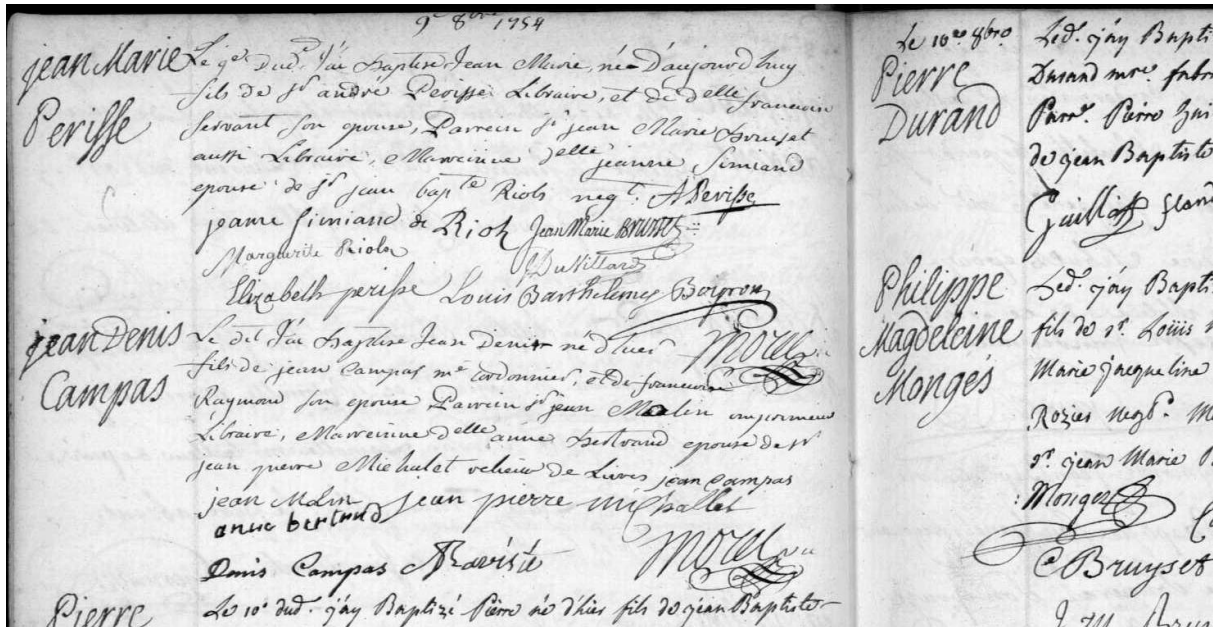 9e 8bre 1754
jean Marie
Perisse
Le 9e Dud. J'ai Baptisé Jean Marie, né D'aujourd'huy
fils de Sr andré Perisse Libraire, et de delle francoise
Servant son epouse, Parrein Sr jean Marie Bruyset
aussi Libraire, Marreinne delle jeanne Simiand
epouse de Sr jean bapte Riols neg. A Perisse
jeanne Simiand de Riols Jean Marie Bruyset
Marguerite Riols Duvillard
Elizabeth perisse Louis Barthelemy
jean Denis
Campas
Le dit J'ai Baptisé Jean Denis né d'hier
fils de jean Campas me cordonnier, et de francoise
Raymond son epouse Parrein Sr jean Molin imprimeur
Libraire, Marreinne delle anne Bertrand epouse de Sr
jean pierre Michalet relieur de Livres jean campas
jean Molin jean pierre michallet
anne bertrand
Denis Campas
Pierre
Le 10e dud. j'ay Baptizé Pierre né d'hier fils de jean Baptiste
Le 10e 8bro
Pierre
Durand
Led. j'ay Bapti
Durand mre. fabri
Parr. Pierre
de jean Baptiste
Philippe
Magdeleine
Mongés
Led. j'ay Bapti
fils de sr. Loüis
Marie jacqueline
Rozier negt.
sr. jean Marie
Monges
Bruyset